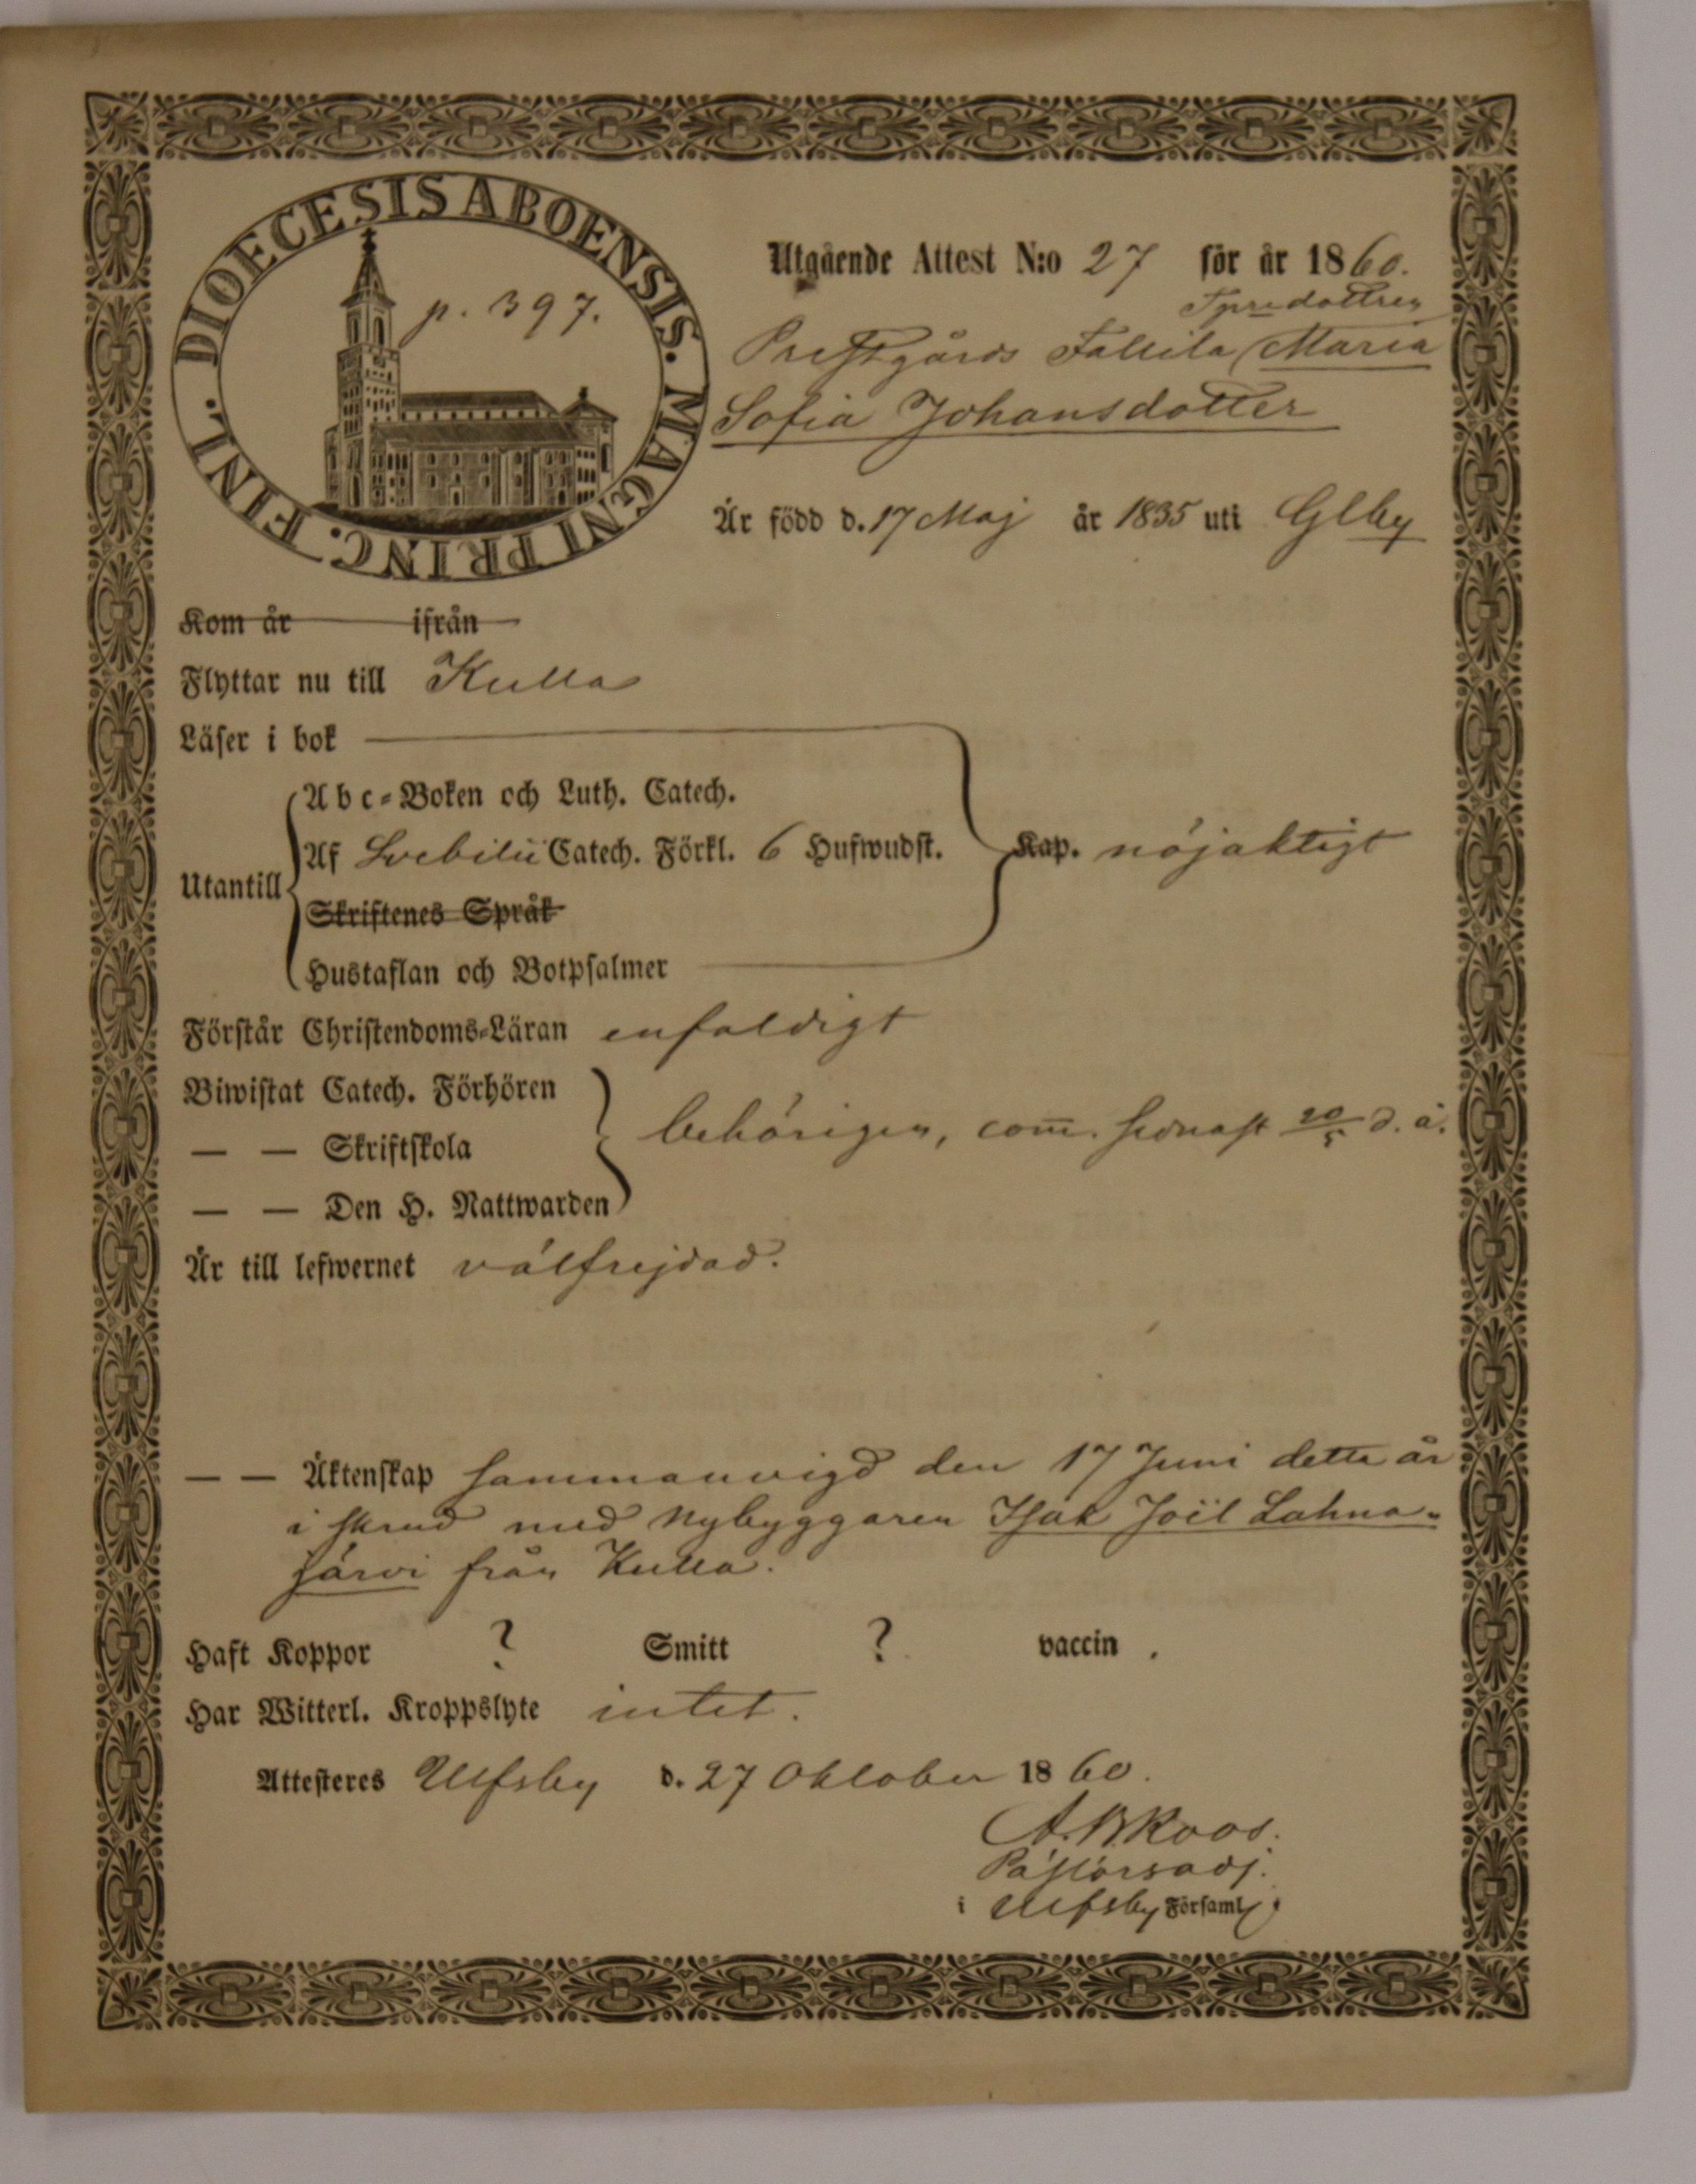 DIOECESIS ABOENSIS. MAGNI PRINC. FINL.
p. 397.
Utgående Attest N:o 27 för år 1860.
dottren
Prestgårds Maria
Sofia Johansdotter
Är född d. 17 Maj år 1835 uti Glby
Kom år ifrån
Flyttar nu till Kulla
Läser i bok
Utantill
Abc-Boken och Luth. Catech.
Af Svebilii Catech. Förkl. 6 Hufwudst.
Skriftenes Språk
Hustaflan och Botpsalmer
Kap. nöjaktigt
Förstår Christendoms-Läran enfaldigt
Biwistat Catech. Förhören
— — Skriftskola
— — Den H. Nattwarden
behörigen, com̄. sednast 20/5 d. å.
Är till lefwernet välfrejdad.
— — Äktenskap sammanvigd den 17 Juni detta år
i skrud med nybyggaren Isak Joël Lahna-
järvi från Kulla.
Haft Koppor ? Smitt ? vaccin .
Har Witterl. Kroppslyte intet.
Attesteres Ulfsby d. 27 Oktober 1860.
Pastorsadj.
i Ulfsby Församl.